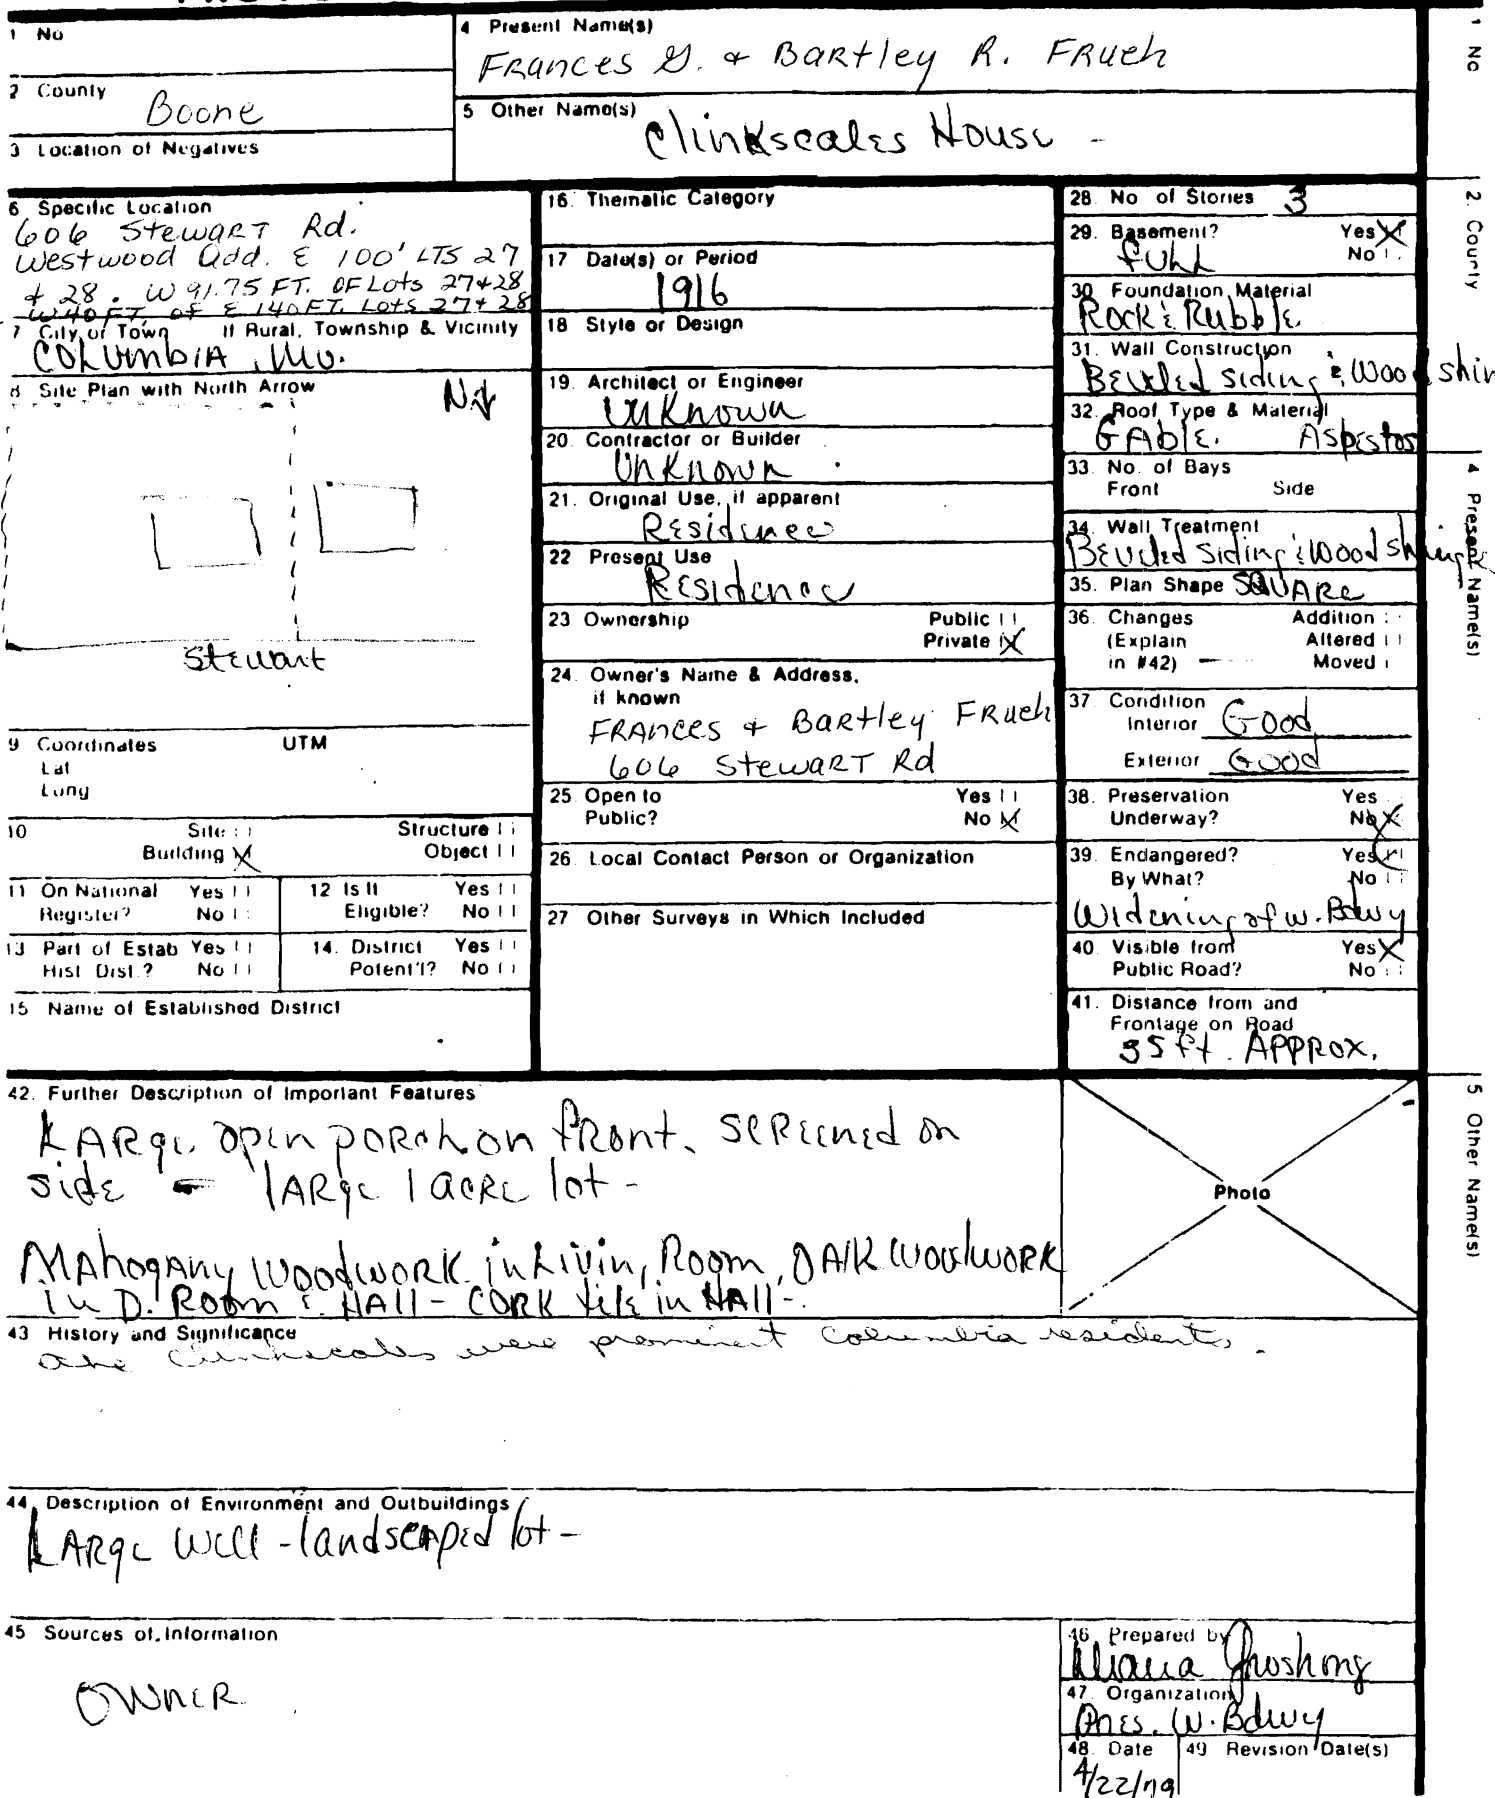 1 No
4 Present Name(s)
Frances G. & Bartley R. Frueh
2 County
Boone
5 Other Name(s)
Clinkscales House -
3 Location of Negatives
6 Specific Location
606 Stewart Rd.
Westwood Add. E 100' LTS 27
& 28. W 91.75 FT. OF Lots 27+28
W 40 FT. OF E 140 FT. Lots 27+28
7 City or Town If Rural, Township & Vicinity
Columbia, Mo.
8 Site Plan with North Arrow
N
Stewart
9 Coordinates UTM
Lat
Long
10 Site Structure
Building X Object
11 On National Register? Yes No
12 Is It Eligible? Yes No
13 Part of Estab Hist Dist.? Yes No
14. District Potent'l? Yes No
15 Name of Established District
16. Thematic Category
17 Date(s) or Period
1916
18 Style or Design
19. Architect or Engineer
Unknown
20. Contractor or Builder
Unknown
21. Original Use, if apparent
Residence
22 Present Use
Residence
23 Ownership Public
Private X
24. Owner's Name & Address,
if known
Frances & Bartley Frueh
606 Stewart Rd
25. Open to Yes
Public? No X
26. Local Contact Person or Organization
27 Other Surveys in Which Included
28. No of Stories 3
29. Basement? Yes X
full No
30. Foundation Material
Rock & Rubble.
31. Wall Construction
Beveled siding & Wood shin
32. Roof Type & Material
Gable. Aspestos
33. No. of Bays
Front Side
34. Wall Treatment
Beveled Siding & Wood Shingle
35. Plan Shape Square
36. Changes Addition
(Explain Altered
in #42) Moved
37. Condition
Interior Good
Exterior Good
38. Preservation Yes
Underway? No X
39. Endangered? Yes
By What? No
Widening of W. Bdwy
40. Visible from Yes X
Public Road? No
41. Distance from and
Frontage on Road
35 ft. APPROX.
42. Further Description of Important Features
Large open porch on front. Screened on
side - large 1 acre lot -
Mahogany woodwork in Livin, Room, OAK woodwork
in D. Room & Hall - CORK tile in Hall -
Photo
43 History and Significance
The Clinkscales were prominent Columbia residents.
44. Description of Environment and Outbuildings
Large well-landscaped lot -
45 Sources of Information
Owner
46. Prepared by
47. Organization
Pres. W. Bdwy
48. Date 49 Revision Date(s)
4/22/79
1 No
2 County
4 Present Name(s)
5 Other Name(s)